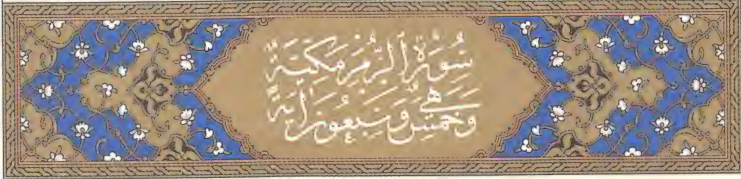 سُورَةُ الزُّمَرِ مَكِّيَّةٌ
وَهِيَ خَمْسٌ وَسَبْعُونَ آيَةً